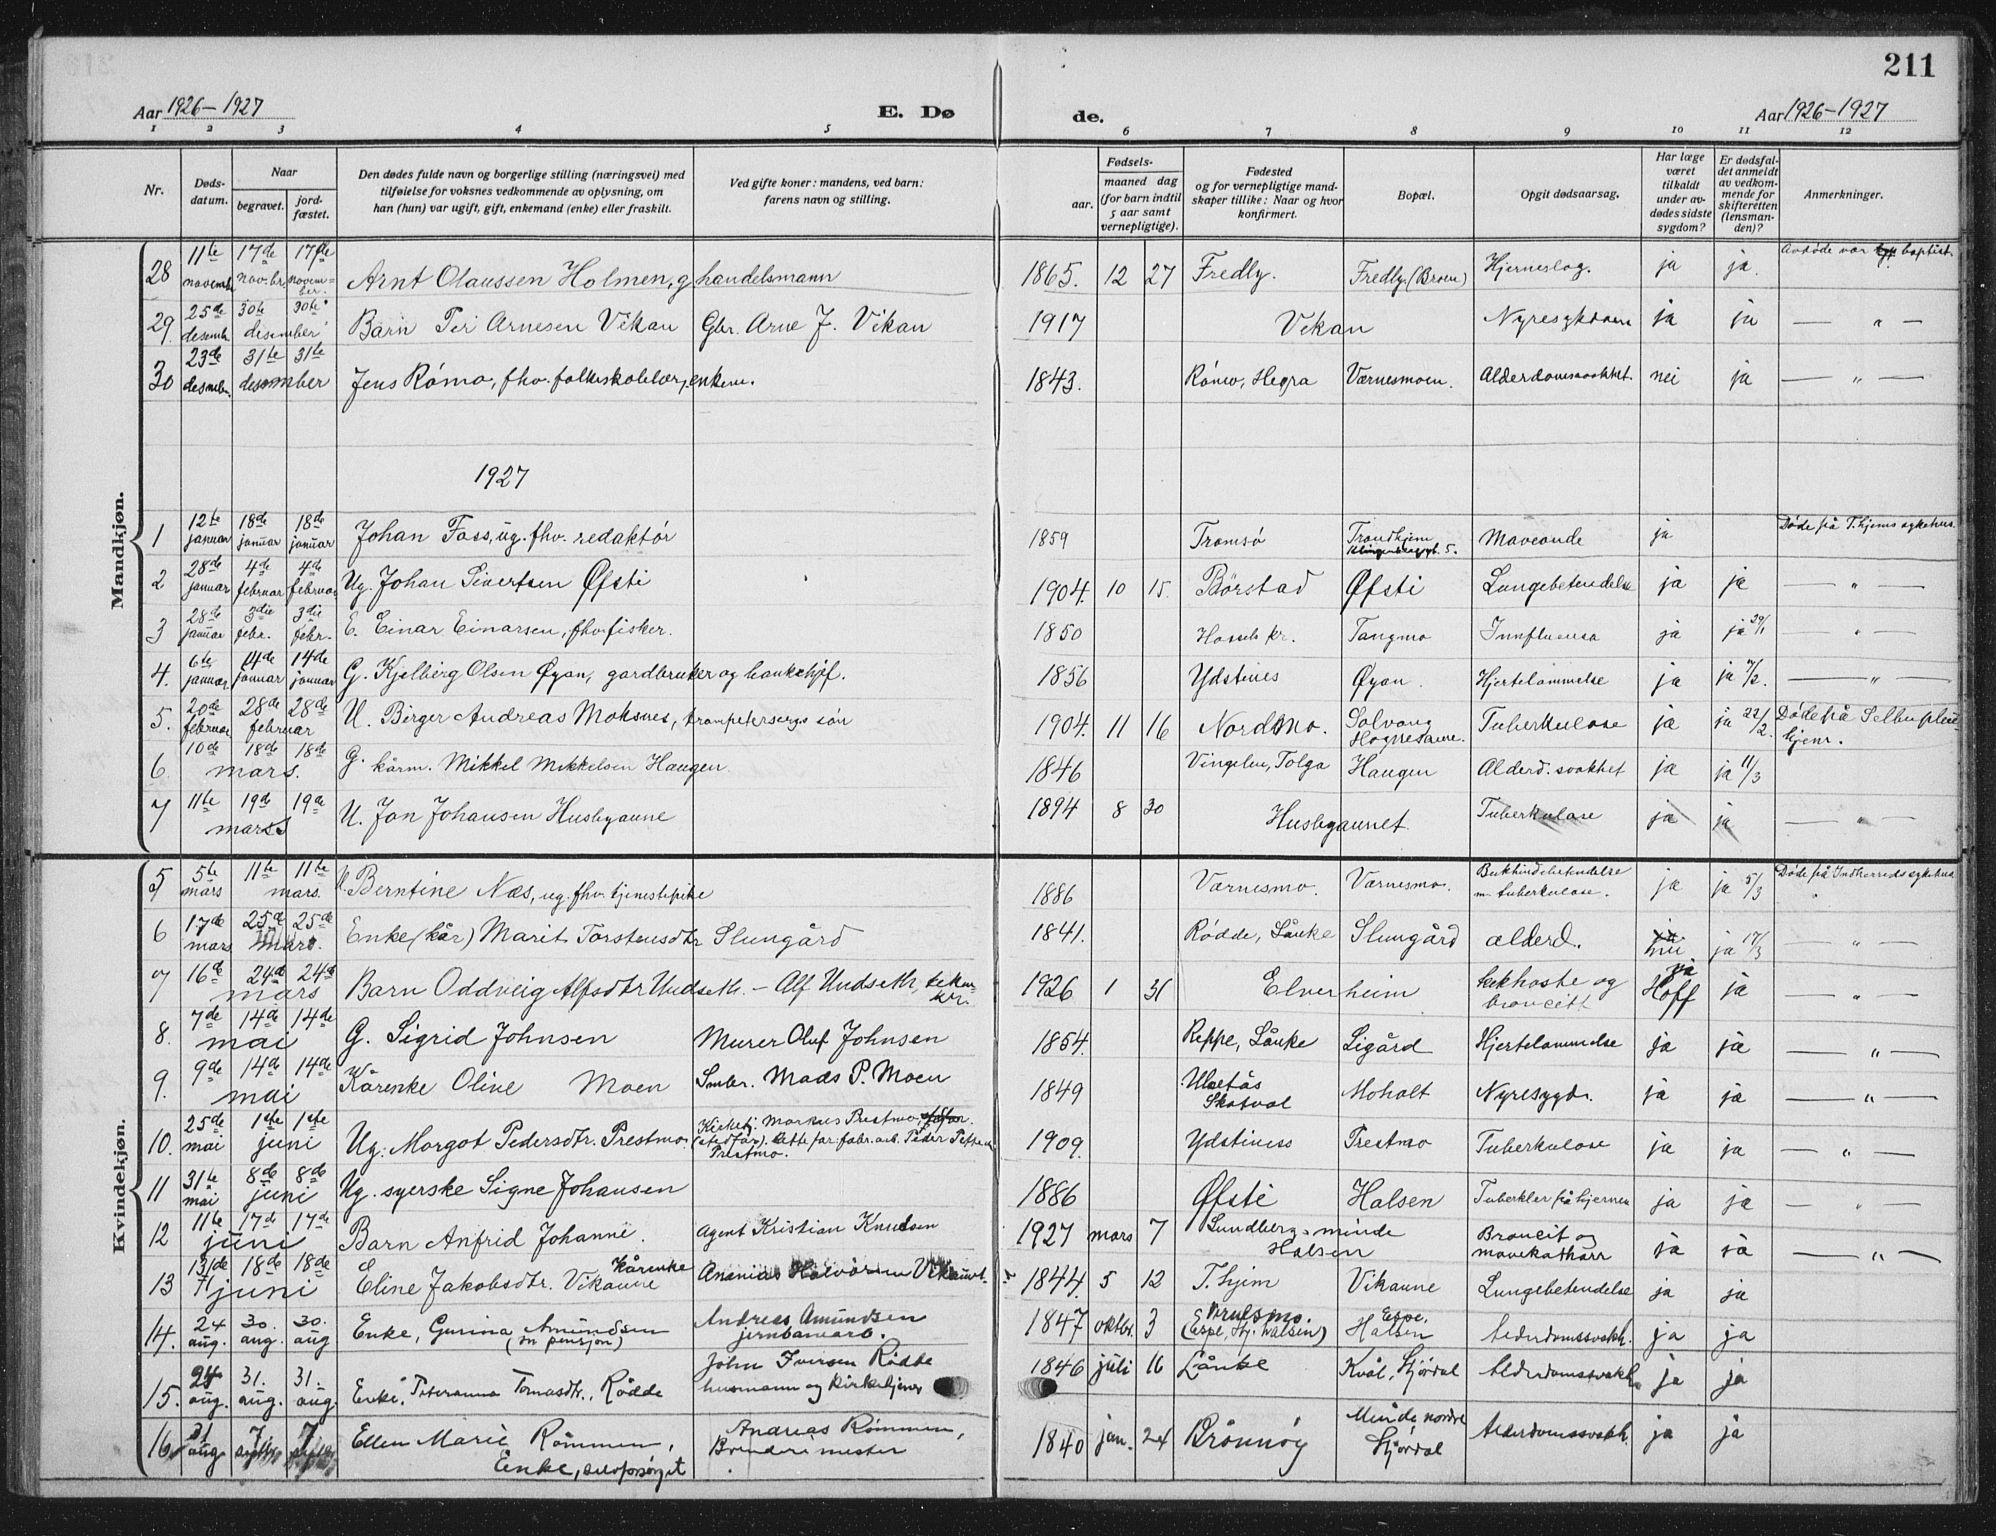 211
Aar 1926–1927
E. Dø
de.
Aar 1926–1927
1 2 3 4 5 6 7 8 9 10 11 12
Nr.
Døds-
datum.
Naar
begravet.
jord-
fæstet.
Den dødes fulde navn og borgerlige stilling (næringsvei) med
tilføielse for voksnes vedkommende av oplysning, om
han (hun) var ugift, gift, enkemand (enke) eller fraskilt.
Ved gifte koner: mandens, ved barn:
farens navn og stilling.
Fødsels-
aar.
maaned dag
(for barn indtil
5 aar samt
vernepligtige).
Fødested
og for vernepligtige mand-
skaper tillike: Naar og hvor
konfirmert.
Bopæl.
Opgit dødsaarsag.
Har læge
været
tilkaldt
under av-
dødes sidste
sygdom?
Er dødsfal-
det anmeldt
av vedkom-
mende for
skifteretten
(lensman-
den)?
Anmerkninger.
Mandkjøn.
28 11te novemb. 17de nov.br. 17de novem=ber. Arnt Olaussen Holmen, g handelsmann 1865. 12 27 Fredly. Fredly (Broen) Hjerneslag. ja ja. Avdøde var baptist.
29. 25de desemb. 30te 30te desember Barn Per Arnesen Vikan Gbr. Arne J. Vikan 1917 Vikan Nyresykdom ja ja — " —
30 23de desemb. 31te 31te desember Jens Rømo, fhv. folkeskolelær, enkem. 1843. Rømo, Hegra Værnesmoen. Alderdomssvakhet. nei ja — " —
1927
1 12te januar 18de januar 18de januar Johan Foss, ug. fhv. redaktør 1859 Tromsø Trondhjem 5. Maveonde ja Døde på T.hjems sykehus.
2 28de januar 4de februar 4de februar Ug. Johan Sivertsen Øfsti 1904. 10 15. Børstad Øfsti Lungebetendelse ja ja — " —
3 28de januar 3die febr. 3die febr. E. Einar Einarsen, fhv. fisker. 1850 Hassels kr. Tangmo Innfluensa ja ja 29/1 — " —
4. 6te januar 14de januar 14de januar G. Kjelberg Olsen Øyan, gardbruker og 1856 Ydstines Øyan. Hjertelammelse ja ja 7/2. — " —
5. 20de februar 28de 28de februar U. Birger Andreas Moksnes, trompetersergs søn 1904. 11 16 Nordmo. Solvang Hognesaune. Tuberkulose ja ja 22/2. Døde på Selbu pleiehjem.
6. 10de 18de 18de mars. G. kårm. Mikkel Mikkelsen Haugen 1846 Vingelen, Tolga Haugen Alderd. svakhet ja ja 11/3
7 11te 19de 19de mars U. Jon Johansen Husbyaune 1894 8 30 Husbyaunet Tuberkulose ja ja — " —
Kvindekjøn.
5 5te mars 11te 11te mars. Berntine Næs, ug. fhv. tjenestepike 1886 Værnesmo. Værnesmo. Bukhindebetendelse m. tuberkulose. ja ja 5/3 Døde på Indherreds sykehus
6 17de mars 25de 25de mars. Enke (kår) Marit Torstensdtr Slungård 1841. Rødde, Lånke Slungård alderd. ja 17/3 — " —
7 16de 24de 24de mars Barn Oddveig Alfsdtr Undseth. – Alf Undseth, 1926 1 31 Elverheim kikhoste og broncitt ja Hoff ja — " —
8. 7de 14de 14de mai G. Sigrid Johnsen Murer Oluf Johnsen 1854. Reppe, Lånke Ligård Hjertelammelse ja ja — " —
9. 9de 14de 14de mai Kårenke Oline Moen Smbr. Mads P. Moen 1849 Ulstås Skatval Moholt Nyresygd. ja ja — " —
10. 25de mai 1ste 1ste juni Ug. Margot Pedersdtr. Prestmo. Kirketj. Markus Prestmo, (stedfar). Rette far: fabr. arb. Peder Prestmo. 1909. Ydstiness Prestmo Tuberkulose ja ja — " —
11 31te mai 8de 8de juni Ug. syerske Signe Johansen 1886 Øfsti Halsen Tuberkler på hjernen ja ja — " —
12 11te 17de 17de juni Barn Anfrid Johanne. Agent Kristian Knudsen 1927 mars 7 Lundbergsminde Halsen Broncit og mavekatharr ja ja — " —
13 13de 18de 18de juni Eline Jakobsdtr. Vikaune kårenke Ananias Halvorsen Vikaunet 1844. 5 12 T.hjem Vikaune Lungebetendelse ja ja
14. 24 aug. 30. aug. 30. aug Enke, Gurina Amundsen (m pensjon) Andreas Amundsen jernbanearb. 1847 oktbr. 3 (Espe, Stj. halsen) Espe, Halsen Alderdomssvakh. ja ja
15. 24 aug. 31. aug. 31. aug. Enke, Peteranna Tomasdtr., Rødde John Iversen Rødde husmann og kirketjener 1846 juli 16 Lånke Kvål, Stjørdal Alderdomssvakh. ja ja
16 31 aug 7. septbr 7 septbr Ellen Marie Rømmen, Enke, selvforsørget Andreas Rømmen, Bundtmester 1840 jan. 24 Brønnøy Minde nordre Stjørdal Alderdomssvakh. ja ja